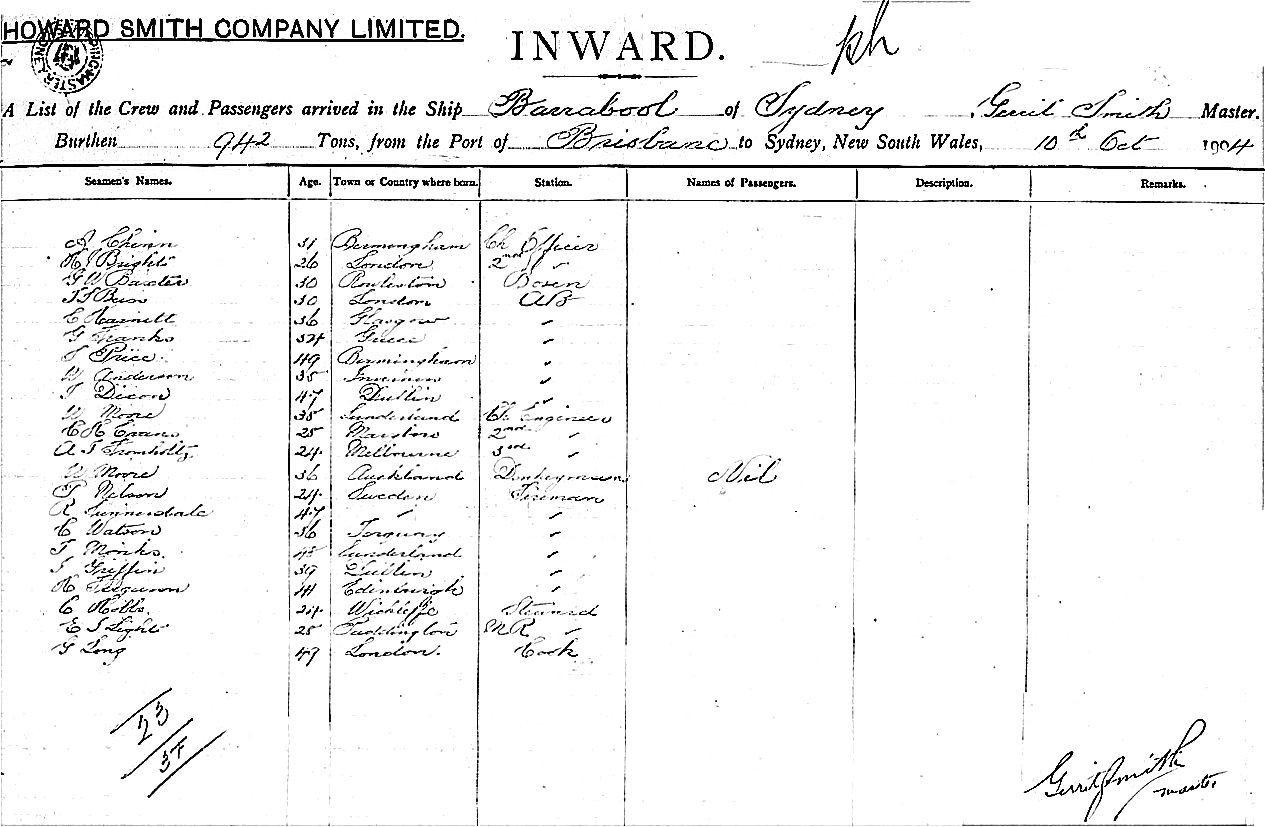 HOWARD SMITH COMPANY LIMITED.
INWARD.
A List of the Crew and Passengers arrived in the Ship Barrabool of Sydney Gerrit Smith Master.
Burthen 942 Tons, from the Port of Brisbane to Sydney, New South Wales, 10th Oct 1904
Seamen's Names. Age. Town or Country where born. Station. Names of Passengers. Description. Remarks.
A Chinn 31 Birmongham Ch Officer
H J Bright 26 London 2nd "
G W Baxter 30 Bosun
30 London AB
C Harnett 36 Glasgow "
G Franks 34 "
J Price 49 Birmingham "
W Anderson 35 "
T Dixon 47 Dublin "
W Moore 35 Sunderland Ch Engineer
C H Evans 25 2nd "
A J Fromholtz 24 Melbourne 3rd "
W Moore 36 Auckland Donkeyman Nil
T Nelson 24 Sweden Fireman
R 47 " "
C Watson 36 Torquay "
T Monks 45 Sunderland "
J Griffin 39 Dublin "
H Ferguson 41 Edinburgh "
C Hobbs 24 Wickliffe Steward
E J Light 25 Paddington MR "
G Long 49 London. Cook
23
37
Gerrit Smith
master